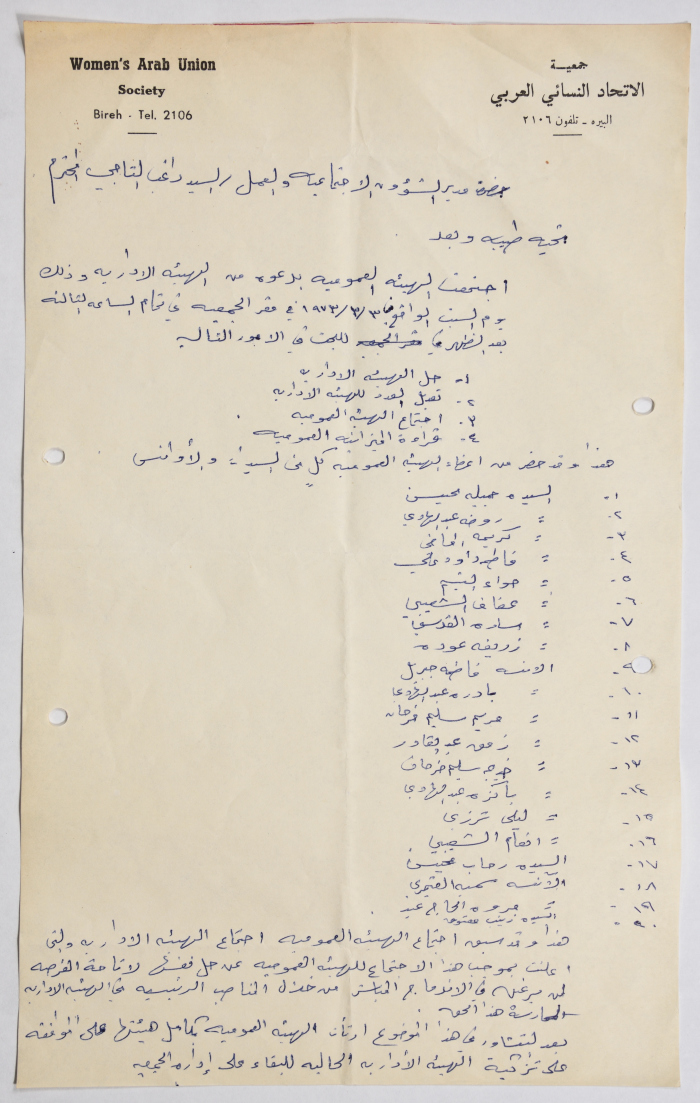 Women's Arab Union
Society
Bireh - Tel. 2106
جمعيـــة
الاتحاد النسائي العربي
البيره - تلفون ٢١٠٦
حضرة مدير الشؤون الاجتماعيه والعمل / السيد راغب التاجي المحترم
تحيه طيبه وبعد
اجتمعت الهيئه العموميه بدعوه من الهيئه الاداريه وذلك
يوم السبت الواقع في ٣/٣/١٩٧٣ في مقر الجمعيه في تمام الساعه الثالثه
بعد الظهر للبحث في الامور التاليه
١- حل الهيئه الاداريه
٢- العدد للهيئه الاداريه
٣- اجتماع الهيئه العموميه
٤- قراءة الميزانيه العموميه
هذا وقد حضر من اعضاء الهيئه العموميه كل من السيدات والأوانس
١- السيده جميله محيسن
٢- " روضه عبدالهادي
٣- " كريمه
٤- " فاطمه داود علي
٥- " حواء اليتيم
٦- " عفاف الشعيبي
٧- " ساره القدسي
٨- " ظريفه عوده
٩- الانسه فاطمه جبريل
١٠- " بادره عبدالهادي
١١- " مريم سليم فرحان
١٢- " زهور عبدالقادر
١٣- " خديجه سليم فرحان
١٤- " باكزه عبدالهادي
١٥- " ليلى ترزي
١٦- " انعام الشعيبي
١٧- السيده رحاب محيسن
١٨- الآنسه سميه القيمري
١٩- " مروه الحاج عبد
٢٠- السيده زينب
هذا وقد سبق اجتماع الهيئه العموميه اجتماع الهيئه الاداريه والتي
اعلنت بموجب هذا الاجتماع للهيئه العموميه عن حل نفسها لاتاحة الفرصه
لمن يرغب في الاندماج المباشر من خلال المناصب الرئيسيه في الهيئه الاداريه
لممارسة هذا الحق.
بعد التشاور في هذا الموضوع ارتأت الهيئه العموميه بكامل هيئتها على الموافقه
على تزكية الهيئه الأداريه الحاليه للبقاء على إدارة الجمعيه